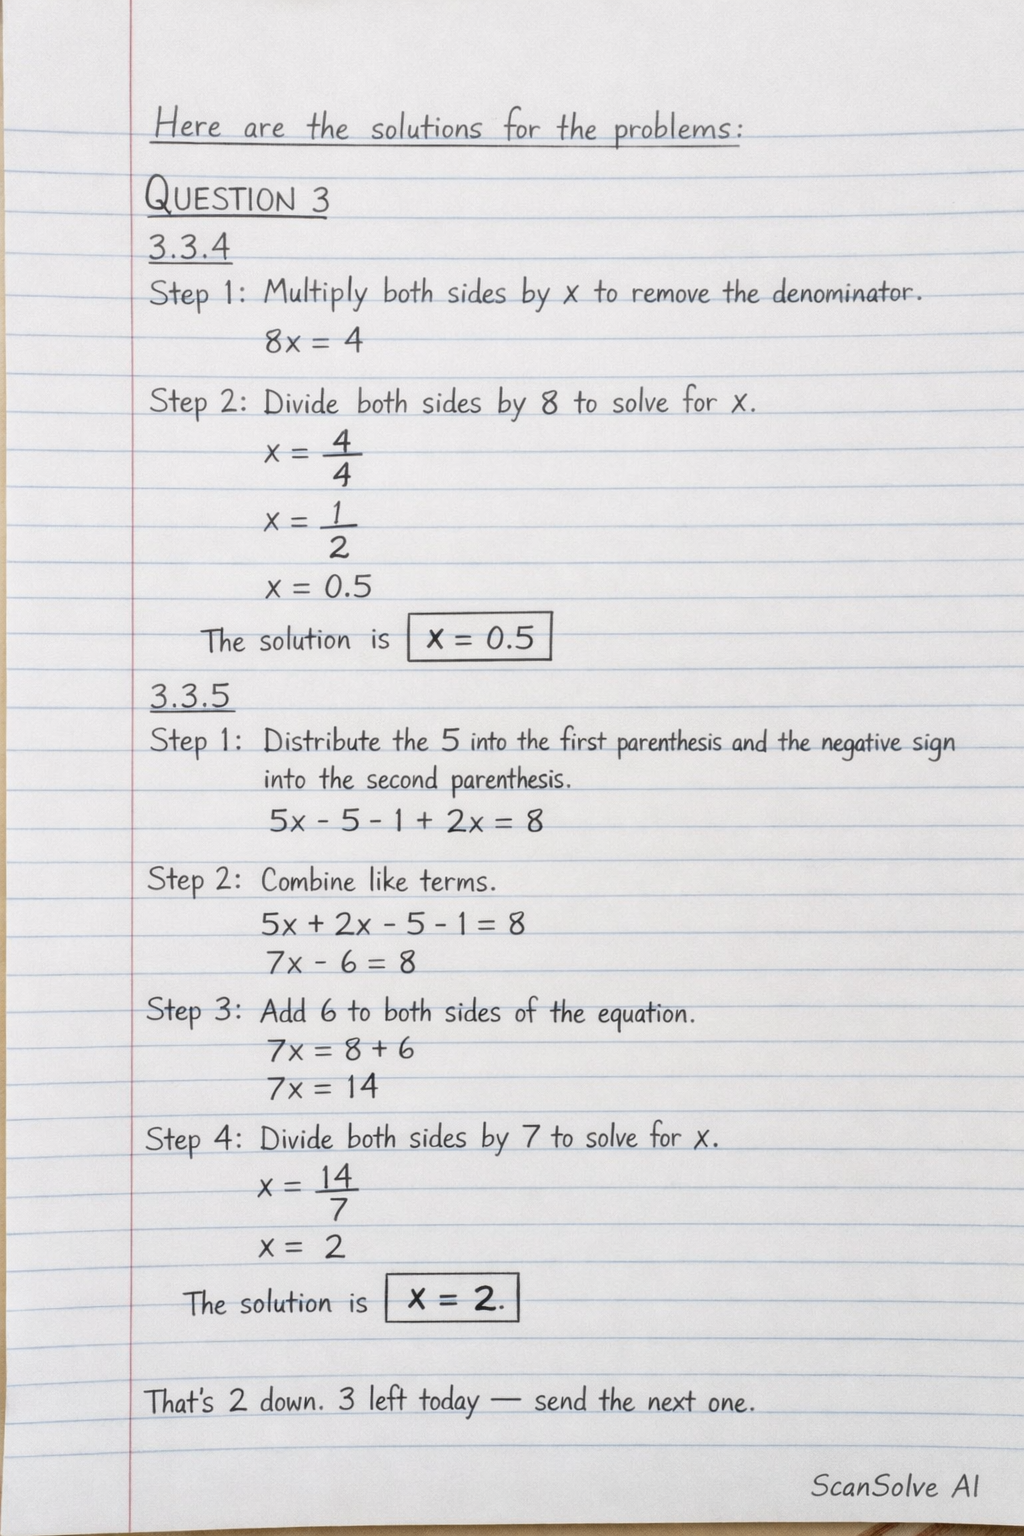 Here are the solutions for the problems:
QUESTION 3
3.3.4
Step 1: Multiply both sides by x to remove the denominator.
8x = 4
Step 2: Divide both sides by 8 to solve for x.
x = 4/4
x = 1/2
x = 0.5
The solution is x = 0.5
3.3.5
Step 1: Distribute the 5 into the first parenthesis and the negative sign
into the second parenthesis.
5x - 5 - 1 + 2x = 8
Step 2: Combine like terms.
5x + 2x - 5 - 1 = 8
7x - 6 = 8
Step 3: Add 6 to both sides of the equation.
7x = 8 + 6
7x = 14
Step 4: Divide both sides by 7 to solve for x.
x = 14/7
x = 2
The solution is x = 2.
That's 2 down. 3 left today — send the next one.
ScanSolve AI